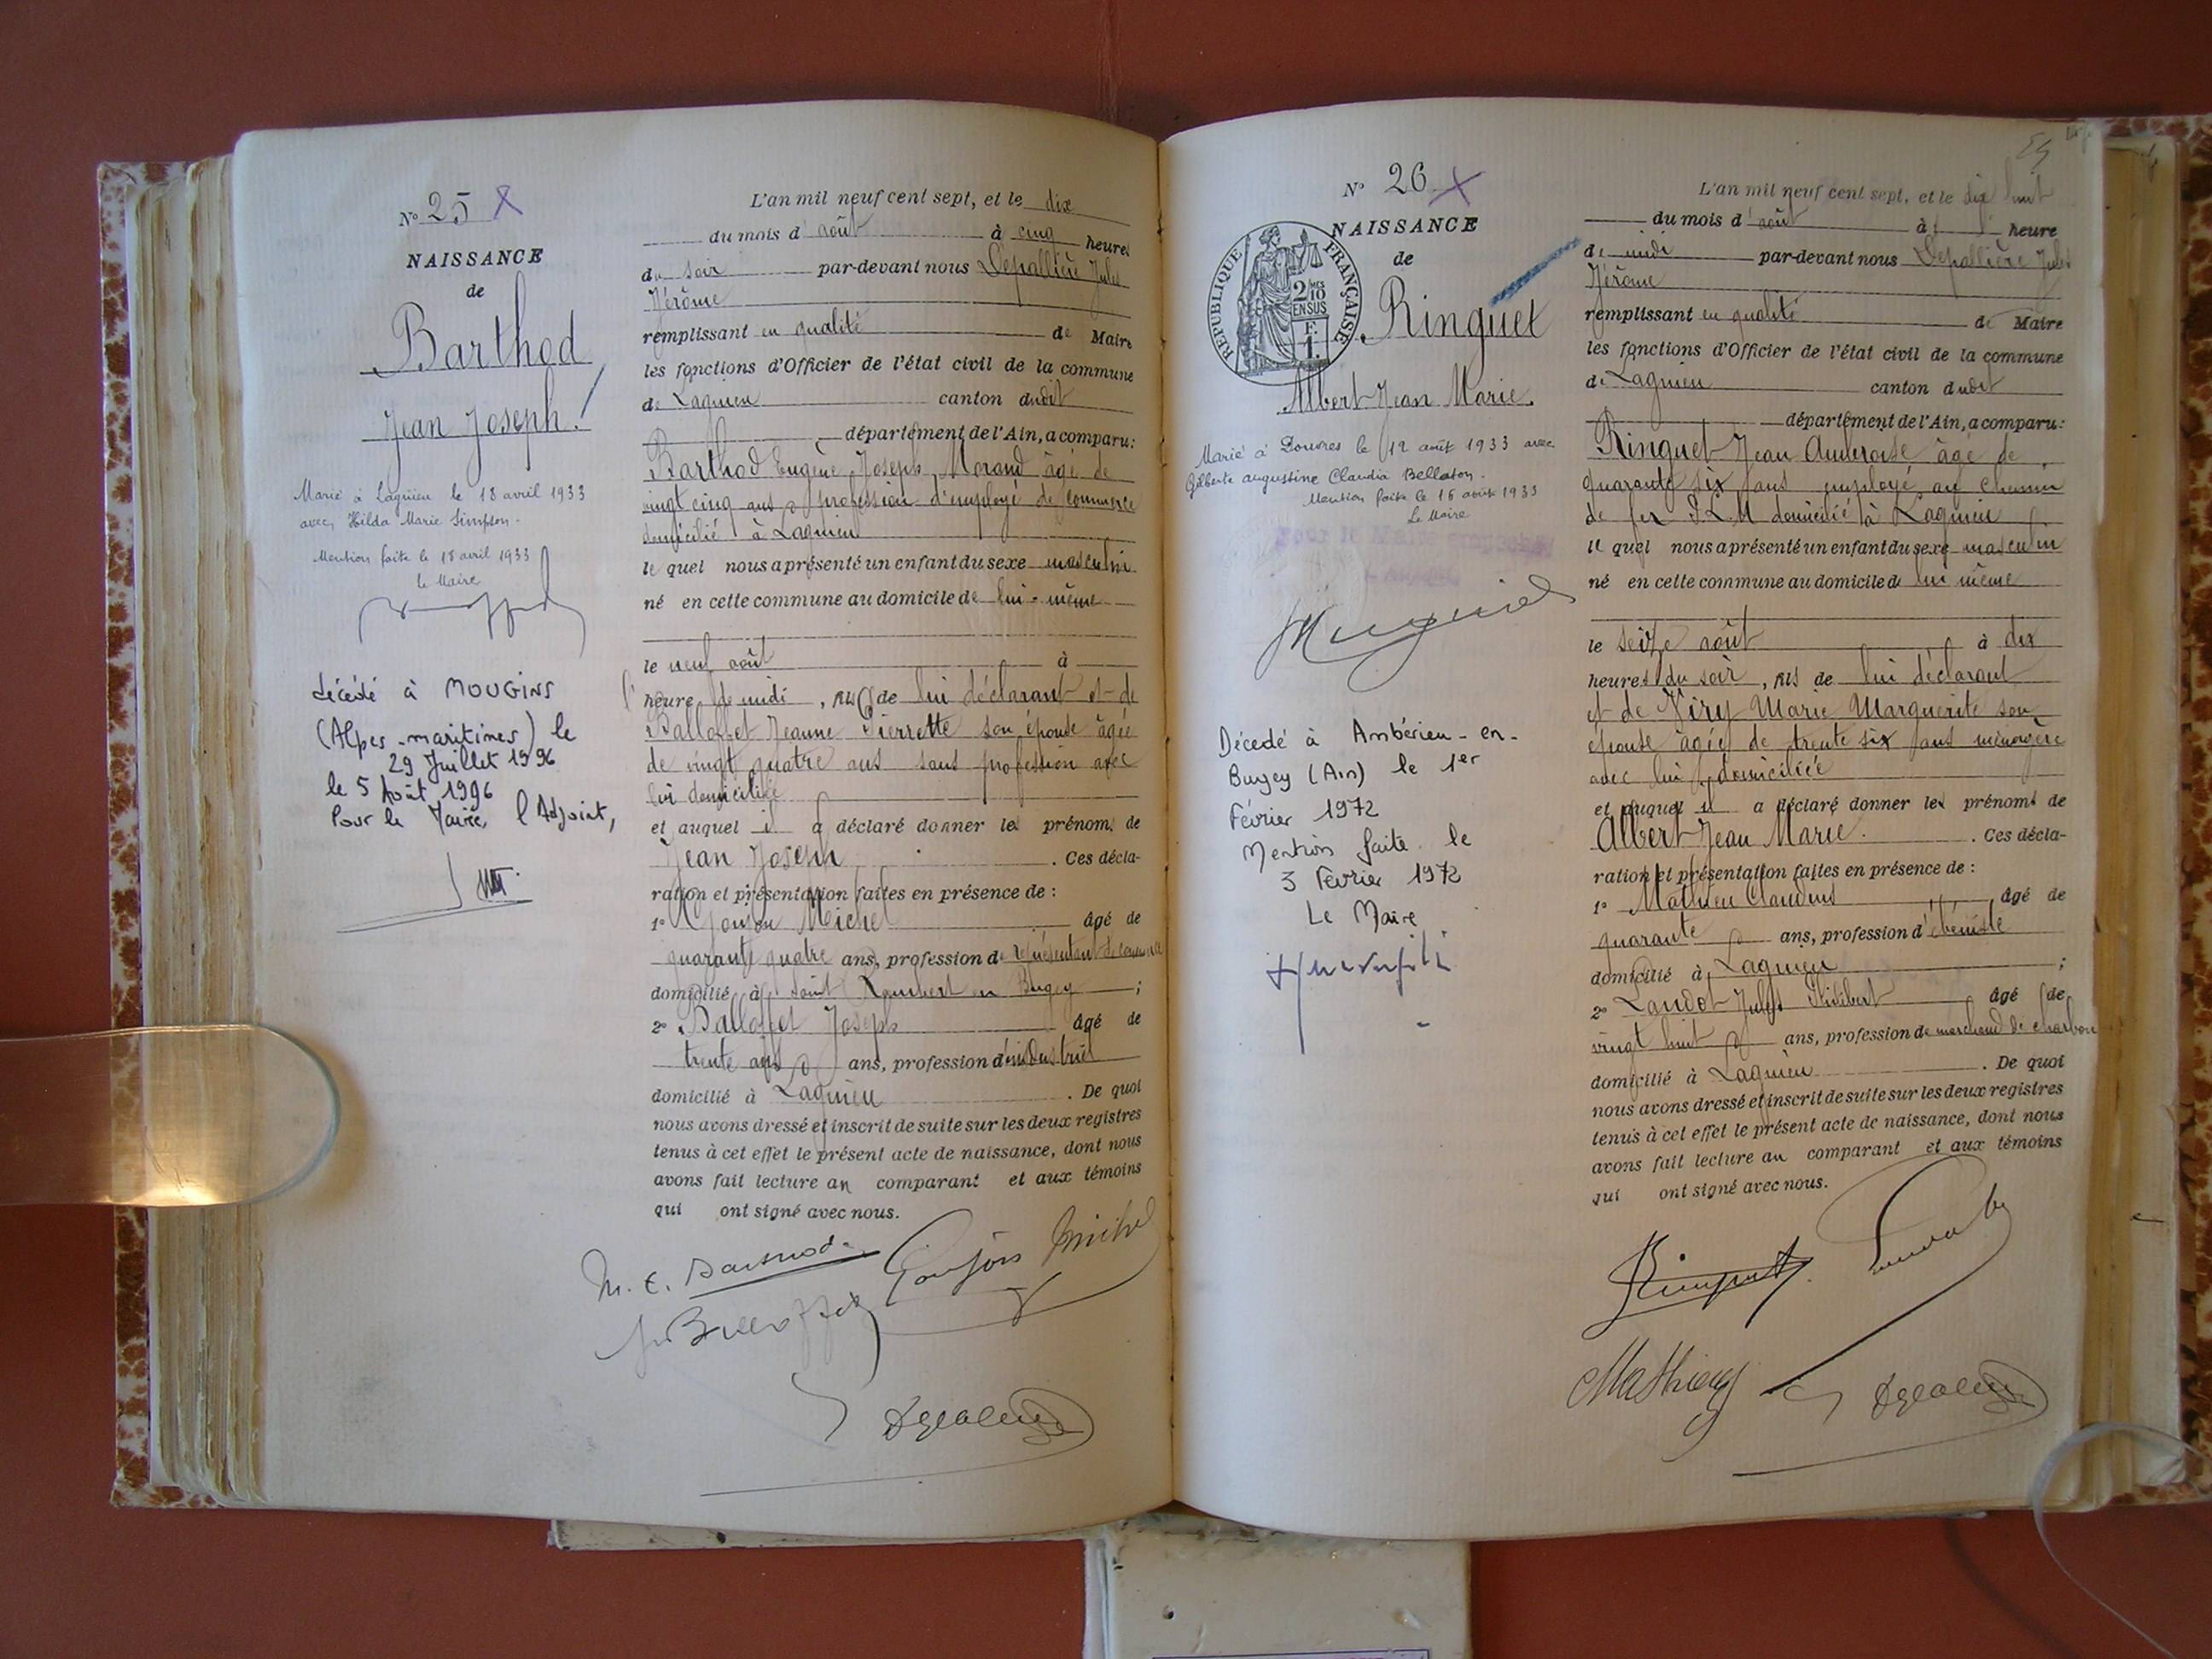 N° 25
NAISSANCE
de
Barthod
Jean Joseph
Marié à Lagnieu le 18 avril 1933
avec Hilda Marie Simpson.
Mention faite le 18 avril 1933
le Maire
décédé à MOUGINS
(Alpes-maritimes) le
29 Juillet 1996
le 5 Août 1996
Pour le Maire, l'Adjoint,
L'an mil neuf cent sept, et le dix
du mois d'août à cinq heures
du soir par-devant nous Depallière Jules
Jérôme
remplissant en qualité de Maire
les fonctions d'Officier de l'état civil de la commune
de Lagnieu canton dudit
département de l'Ain, a comparu:
Barthod Eugène Joseph Morand âgé de
vingt cinq ans profession d'employé de commerce
domicilié à Lagnieu
le quel nous a présenté un enfant du sexe masculin
né en cette commune au domicile de lui-même
le neuf août à
heure de midi, fils de lui déclarant et de
Balloffet Jeanne Pierrette son épouse âgée
de vingt quatre ans sans profession avec
lui domiciliée
et auquel il a déclaré donner les prénoms de
Jean Joseph. Ces décla-
ration et présentation faites en présence de :
1° Goujon Michel âgé de
quarante quatre ans, profession de représentant de commerce
domicilié à Saint Rambert en Bugey ;
2° Balloffet Joseph âgé de
trente ans ans, profession d'industriel
domicilié à Lagnieu. De quoi
nous avons dressé et inscrit de suite sur les deux registres
tenus à cet effet le présent acte de naissance, dont nous
avons fait lecture au comparant et aux témoins
qui ont signé avec nous.
Goujon Michel
N° 26
NAISSANCE
de
RÉPUBLIQUE FRANÇAISE
2 MES
10
EN SUS
F.
1.
Ringuet
Albert Jean Marie.
Marié à Douvres le 12 août 1933 avec
Gilberte Augustine Claudia Bellaton.
Mention faite le 16 août 1933
Le Maire
Décédé à Ambérieu-en-
Bugey (Ain) le 1er
Février 1972
Mention faite le
3 Février 1972
Le Maire
L'an mil neuf cent sept, et le dix huit
du mois d'août à heure
de midi par-devant nous Depallière Jules
Jérôme
remplissant en qualité de Maire
les fonctions d'Officier de l'état civil de la commune
de Lagnieu canton dudit
département de l'Ain, a comparu:
Ringuet Jean Ambroise âgé de
quarante six ans employé au chemin
de fer P.L.M domicilié à Lagnieu
le quel nous a présenté un enfant du sexe masculin
né en cette commune au domicile de lui même
le seize août à dix
heures du soir, fils de lui déclarant
et de Niry Marie Marguerite son
épouse âgée de trente six ans ménagère
avec lui domiciliée
et auquel il a déclaré donner les prénoms de
Albert Jean Marie. Ces décla-
ration et présentation faites en présence de :
1° Mathieu Claudius âgé de
quarante ans, profession d'ébéniste
domicilié à Lagnieu ;
2° Landot Jules âgé de
vingt huit ans, profession de marchand de charbon
domicilié à Lagnieu. De quoi
nous avons dressé et inscrit de suite sur les deux registres
tenus à cet effet le présent acte de naissance, dont nous
avons fait lecture au comparant et aux témoins
qui ont signé avec nous.
Ringuet
Mathieu